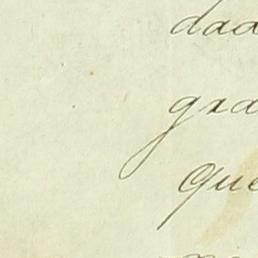 dad
gra
que